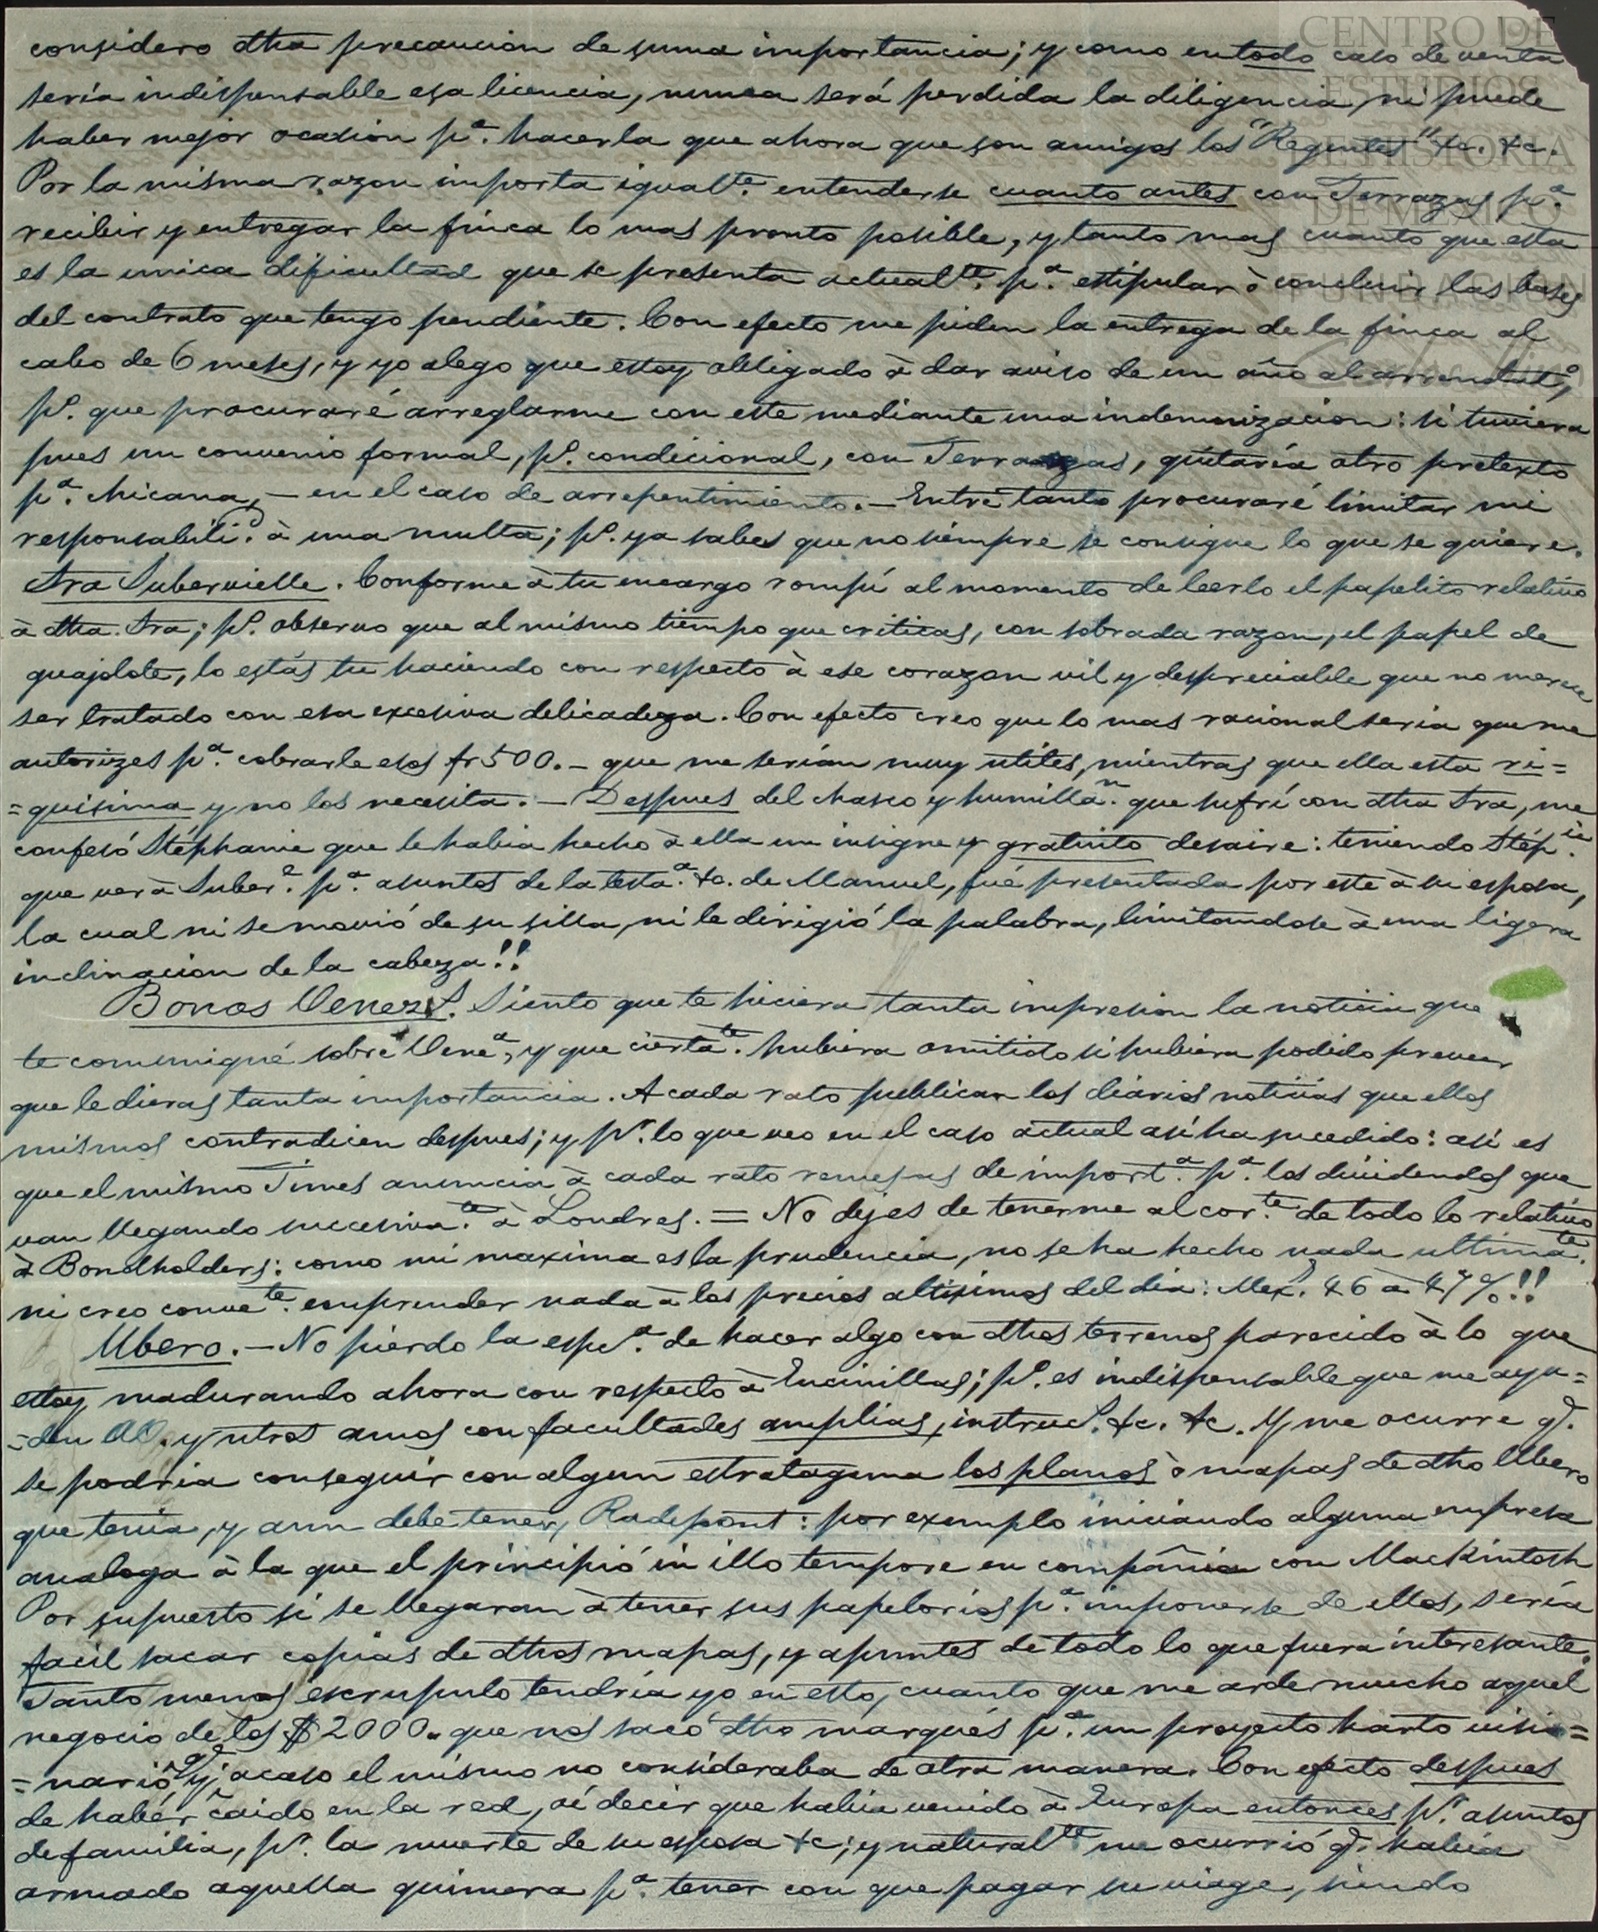 considero dha precaucion de suma importancia; y como en todo caso de venta
sería indispensable esa licencia, nunca será perdida la diligencia, ni puede
haber mejor ocasion pª. hacerla que ahora que son amigos los "Regentes" &c. &c.
Por la misma razon importa igualte. entenderse cuanto antes con Terrazas pª.
recibir y entregar la finca lo mas pronto posible, y tanto mas cuanto que esta
es la unica dificultad que se presenta actualte. pª. estipular ò concluir las bases
del contrato que tengo pendiente. Con efecto me piden la entrega de la finca al
cabo de 6 meses, y yo alego que estoy obligado à dar aviso de un año al arrendato,
pº. que procuraré arreglarme con este mediante una indemnizacion: si tuviera
pues un convenio formal, pº. condicional, con Terrazas, quitaría otro pretexto
pª. chicana, — en el caso de arrepentimiento. — Entre tanto procuraré limitar mi
responsabili.d à una multa; pº. ya sabes que no siempre se consigue lo que se quiere.
Sra Subervielle. Conforme à tu encargo rompí al momento de leerlo el papelito relativo
à dha. Sra; pº. observo que al mismo tiempo que criticas, con sobrada razon, el papel de
guajolote, lo estás tu haciendo con respecto à ese corazon vil y despreciable que no merece
ser tratado con esa excesiva delicadeza. Con efecto creo que lo mas racional seria que me
autorizes pª. cobrarle esos fr 500. — que me serian muy utiles, mientras que ella esta ri=
=quisima y no los necesita. — Despues del chasco y humillan. que sufrí con dha Sra, me
confesó Stéphanie que le habia hecho à ella un insigne y gratuito desaire: teniendo Stépie.
que ver à Suber.e pª. asuntos de la testaª. &c. de Manuel, fué presentada por este à su esposa,
la cual ni se movió de su silla, ni le dirigió la palabra, limitandose à una ligera
inclinacion de la cabeza!!
Bonos Venezs. Siento que te hiciera tanta impresion la noticia que
te comuniqué sobre Veneª, y que ciertate. hubiera omitido si hubiera podido preveer
que le dieras tanta importancia. A cada rato publican los diarios noticias que ellos
mismos contradicen despues; y pr. lo que veo en el caso actual asi ha sucedido: asi es
que el mismo Times anuncia à cada rato remesas de importª. pª. los dividendos que
van llegando succesivate. à Londres. = No dejes de tenerme al corte. de todo lo relativo
à Bondholders: como mi maxima es la prudencia, no se ha hecho nada ultimate.
ni creo convete. emprender nada à los precios altísimos del dia: Mexs. 46 à 47%!!
Ubero. — No pierdo la espª. de hacer algo con dhos terrenos parecido à lo que
estoy madurando ahora con respecto à Encinillas; pº. es indispensable que me ayu=
=den y utros amos con facultades amplias, instrucs. &c. &c. Y me ocurre q.
se podria conseguir con algun estratagema los planos ò mapas de dho Ubero
que tenia, y aun debe tener, Radepont: por exemplo iniciando alguna empresa
analoga à la que el principió in illo tempore en compañia con Mackintosh
Por supuesto si se llegaran à tener sus papelorios pª. imponerse de ellos, sería
facil sacar copias de dhos mapas, y apuntes de todo lo que fuera interesante.
Tanto menos escrupulo tendría yo en esto, cuanto que me arde mucho aquel
negocio de los $2000.. que nos sacó dho marqués pª. un proyecto harto visio=
=nario, y q. acaso el mismo no consideraba de otra manera. Con efecto despues
de haber caido en la red, oí decir que habia venido à Europa entonces pr. asuntos
de familia, pr. la muerte de su esposa &c; y naturalte me ocurrió q. habia
armado aquella quimera pª. tener con que pagar su viage, siendo